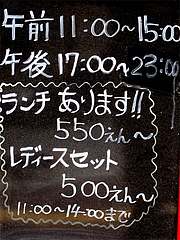 午前11:00~15:00
午後17:00~23:00
ランチあります!!
550えん~
レディースセット
500えん~
11:00~14:00まで